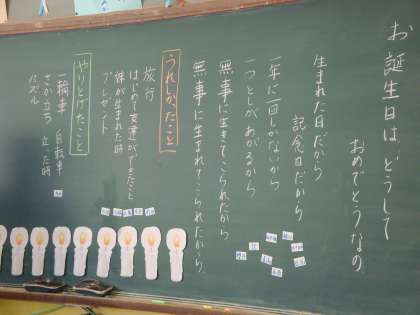 お誕生日は、どうして
おめでとうなの
生まれた日だから
記念日だから
一年に一回しかないから
一つとしがあがるから
無事に生きてこられたから
無事に生まれてこられたから、
うれしかったこと
旅行
はじめて友達ができたこと
妹が生まれた時
プレゼント
やりとげたこと
一輪車 自転車
さか立ち 立った時
パズル